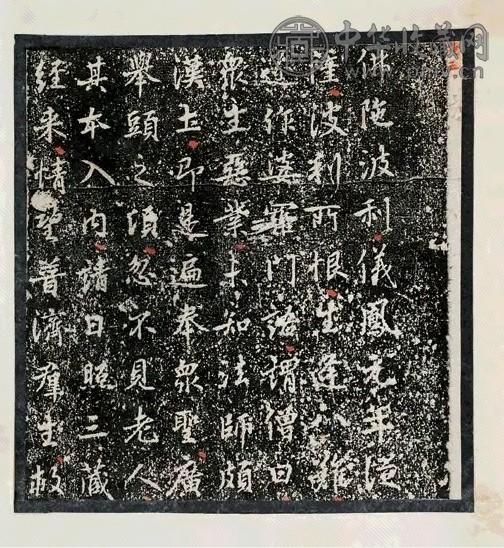 佛陁波利儀鳳元年從
波利所恨生逢八難
遂作婆羅門語謂僧曰
衆生惡業未知法師頗
漢土即是遍奉衆聖廣
舉頭之頃忽不見老人
其本入內請日照三藏
經来情望普濟羣生故
中华收藏网